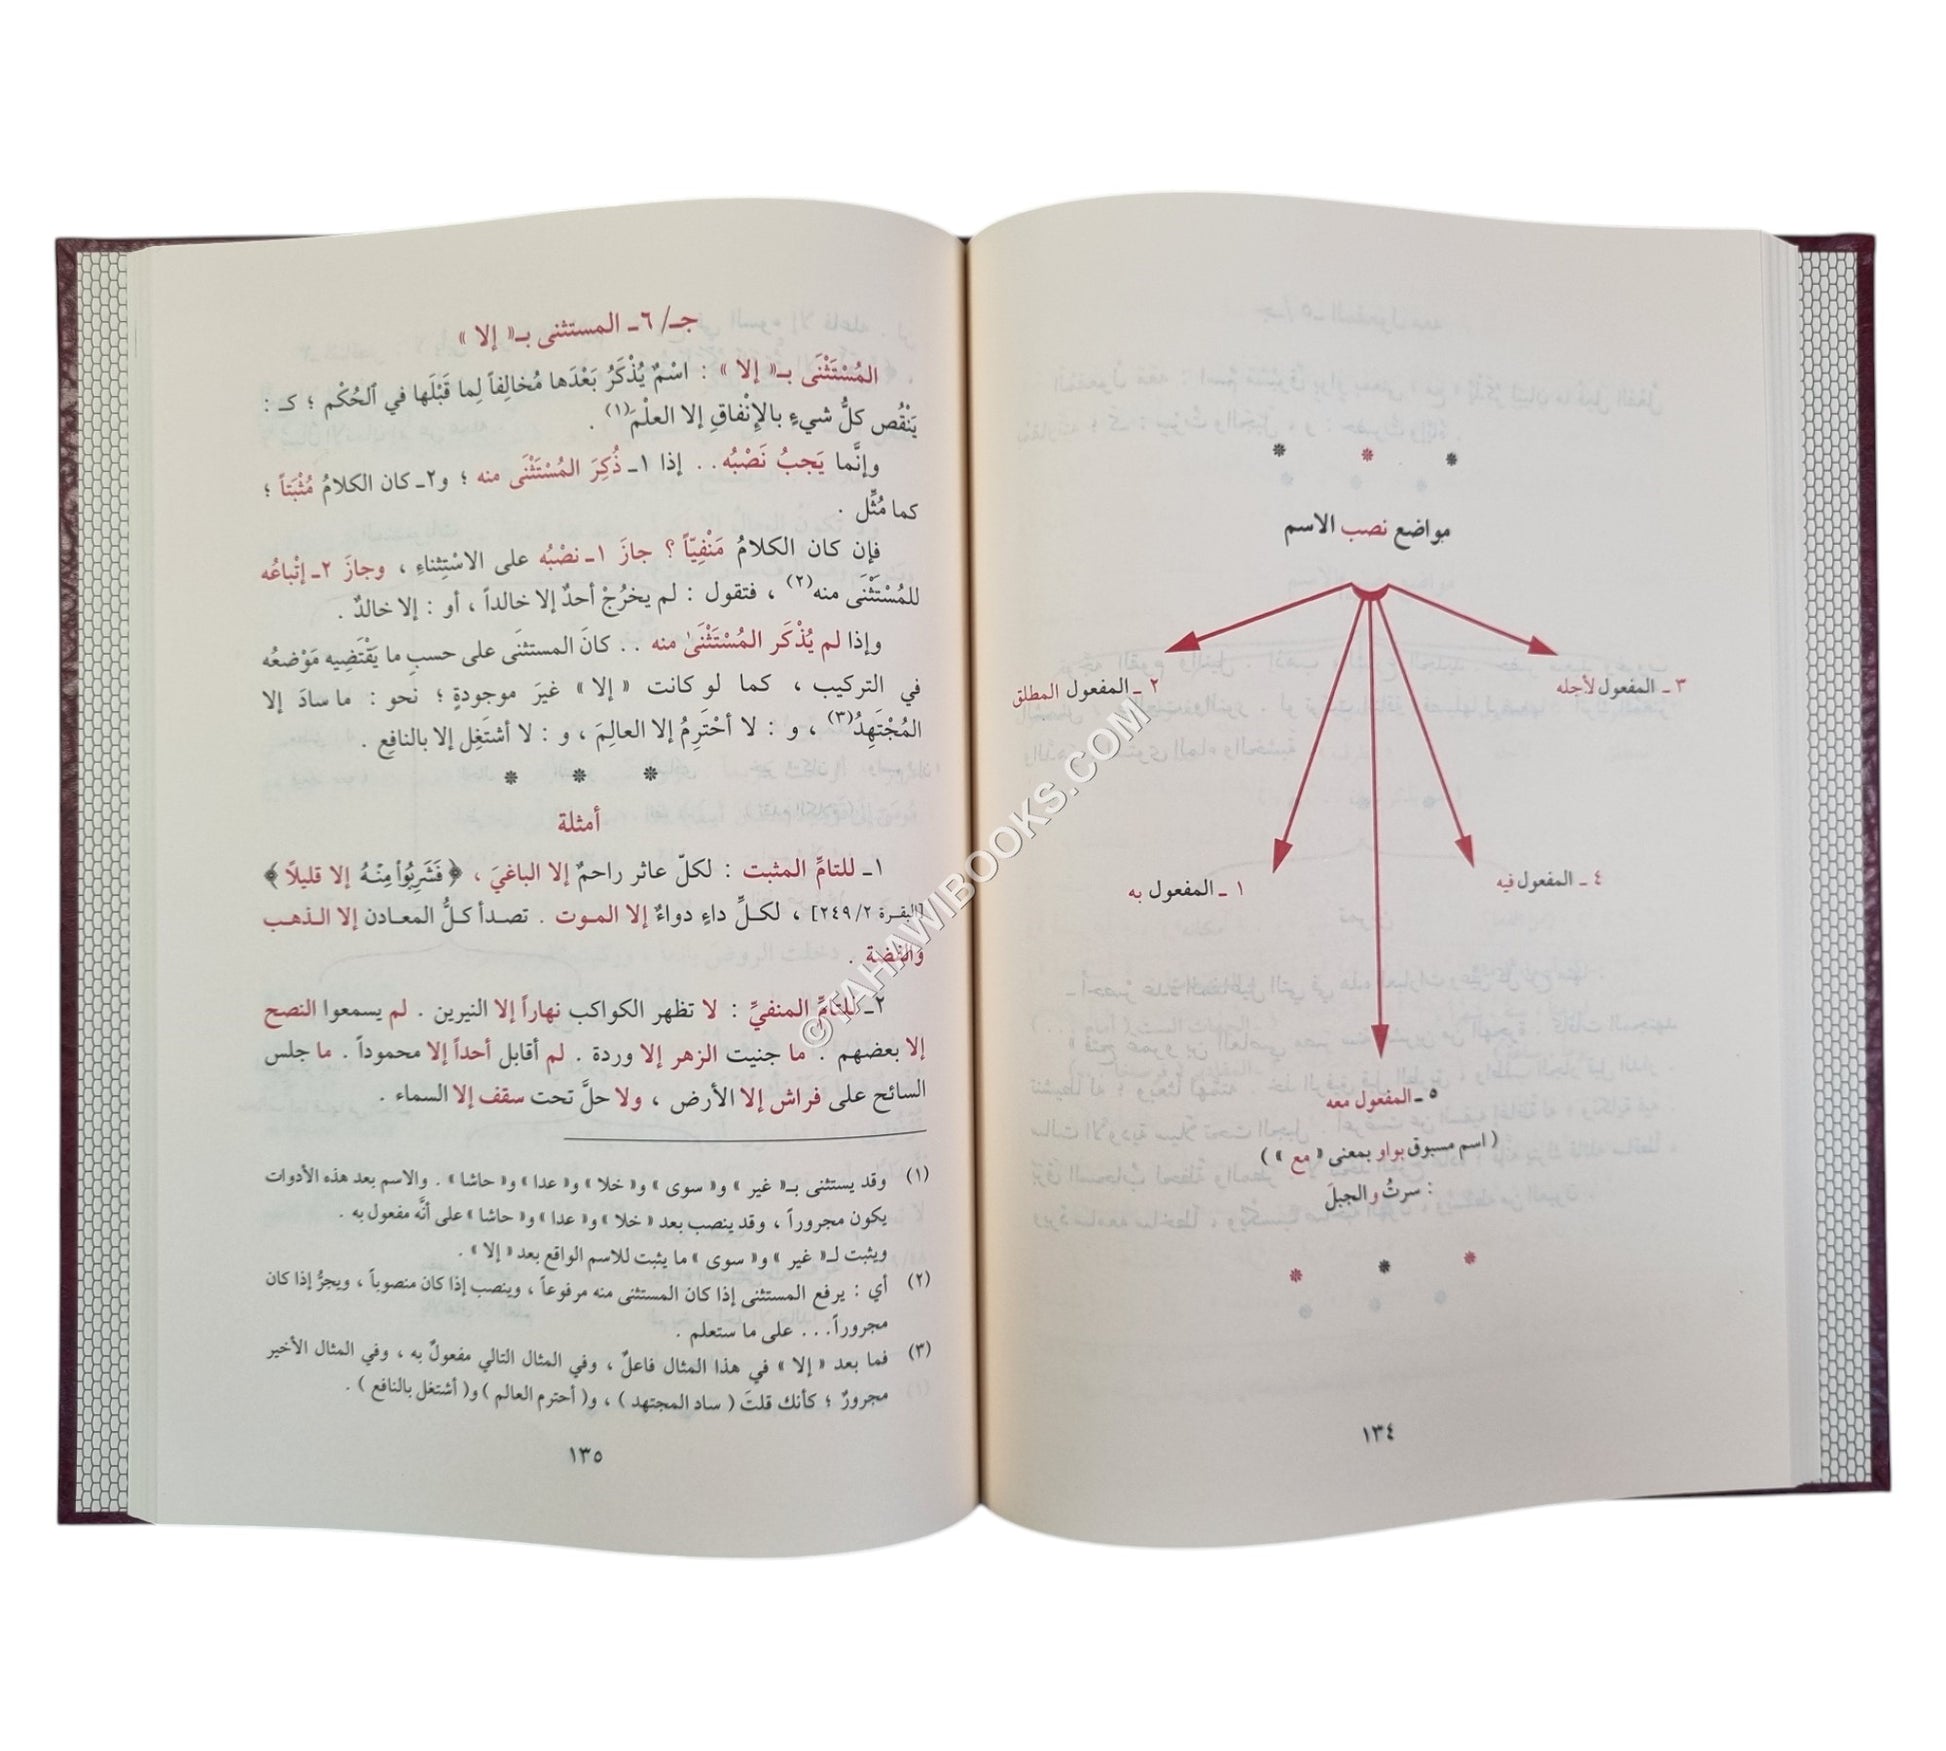 مواضع نصب الاسم
٣ ـ المفعول لأجله
٢ ـ المفعول المطلق
٤ ـ المفعول فيه
١ ـ المفعول به
٥ ـ المفعول معه
( اسم مسبوق بواو بمعنى « مع » )
: سرتُ والجبلَ
١٣٤
جـ/ ٦ـ المستثنى بـ« إلا »
المُسْتَثْنَى بـ« إلا » : اسْمٌ يُذْكَرُ بَعْدَها مُخالِفاً لِما قَبْلَها في الحُكْم ؛ كـ :
يَنْقُص كلُّ شيءٍ بالإنْفاقِ إلا العلْمَ(١) .
وإنَّما يَجبُ نَصْبُه . . إذا ١ـ ذُكِرَ المُسْتَثْنَى منه ؛ و٢ـ كان الكلامُ مُثْبَتاً ؛
كما مُثِّل .
فإن كان الكلامُ مَنْفِيّاً ؟ جازَ ١ـ نصْبُه على الاسْتِثناءِ ، وجازَ ٢ـ إتْباعُه
للمُسْتَثْنَى منه(٢) ، فتقول : لم يخرُجْ أحدٌ إلا خالداً ، أو : إلا خالدٌ .
وإذا لم يُذْكَر المُسْتَثْنَىٰ منه . . كانَ المستثنَى على حسبِ ما يَقْتَضِيه مَوْضعُه
في التركيب ، كما لو كانت « إلا » غيرَ موجودةٍ ؛ نحو : ما سادَ إلا
المُجْتَهِدُ(٣) ، و : لا أحْتَرِمُ إلا العالِمَ ، و : لا أشتَغِل إلا بالنافِع .
أمثلة
١ـ للتامِّ المثبت : لكلّ عاثر راحمٌ إلا الباغيَ ، ﴿ فَشَرِبُواْ مِنْهُ إلا قليلاً ﴾
[البقرة ٢/ ٢٤٩] ، لكلِّ داءٍ دواءٌ إلا الموت . تصدأ كلُّ المعادن إلا الذهب
والفضة .
٢ـ للتامِّ المنفيِّ : لا تظهر الكواكب نهاراً إلا النيرين . لم يسمعوا النصح
إلا بعضهم . ما جنيت الزهر إلا وردة . لم أقابل أحداً إلا محموداً . ما جلس
السائح على فراش إلا الأرض ، ولا حلَّ تحت سقف إلا السماء .
(١) وقد يستثنى بـ« غير » و« سوى » و« خلا » و« عدا » و« حاشا » . والاسم بعد هذه الأدوات
يكون مجروراً ، وقد ينصب بعد « خلا » و« عدا » و« حاشا » على أنَّه مفعول به .
ويثبت لـ« غير » و« سوى » ما يثبت للاسم الواقع بعد « إلا » .
(٢) أي : يرفع المستثنى إذا كان المستثنى منه مرفوعاً ، وينصب إذا كان منصوباً ، ويجرُّ إذا كان
مجروراً... على ما ستعلم .
(٣) فما بعد « إلا » في هذا المثال فاعلٌ ، وفي المثال التالي مفعولٌ به ، وفي المثال الأخير
مجرورٌ ؛ كأنك قلتَ ( ساد المجتهد ) ، و( أحترم العالم ) و( أشتغل بالنافع ) .
١٣٥
©TAHAWIBOOKS.COM